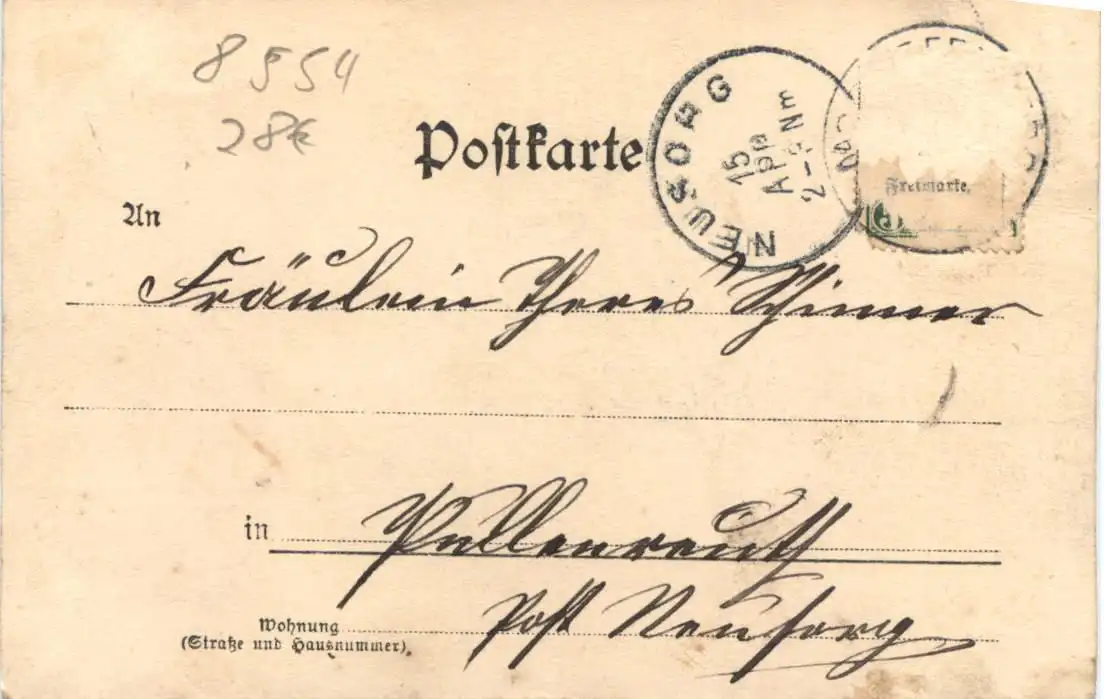 8554
28€
Postkarte
NEUSORG
15
APR
2-3Nm
Freimarke.
5
An
Fräulein Theres Schinner
in Pullenreuth
Wohnung
(Straße und Hausnummer)
Post Neusorg